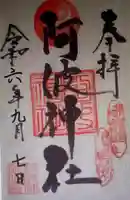 奉拝
阿波神社
令和六年九月
七日